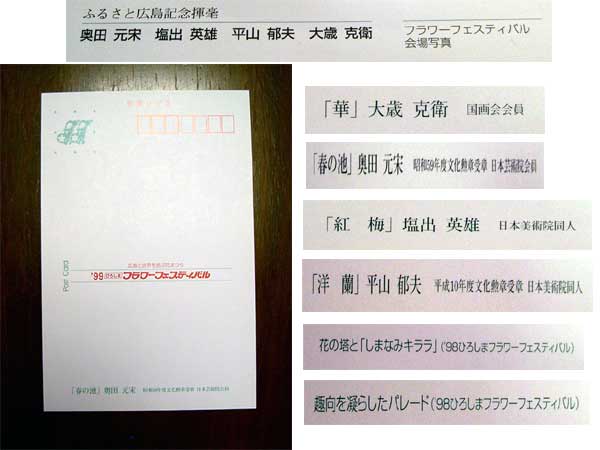 ふるさと広島記念揮毫
奥田 元宋 塩出 英雄 平山 郁夫 大歳 克衛
フラワーフェスティバル
会場写真
郵便はがき
Post Card
広島と世界を結ぶ花まつり
'99ひろしまフラワーフェスティバル
「春の池」奥田 元宋 昭和59年度文化勲章受章 日本芸術院会員
「華」大歳 克衛 国画会会員
「春の池」奥田 元宋 昭和59年度文化勲章受章 日本芸術院会員
「紅 梅」塩出 英雄 日本美術院同人
「洋 蘭」平山 郁夫 平成10年度文化勲章受章 日本美術院同人
花の塔と「しまなみキララ」('98ひろしまフラワーフェスティバル)
趣向を凝らしたパレード('98ひろしまフラワーフェスティバル)